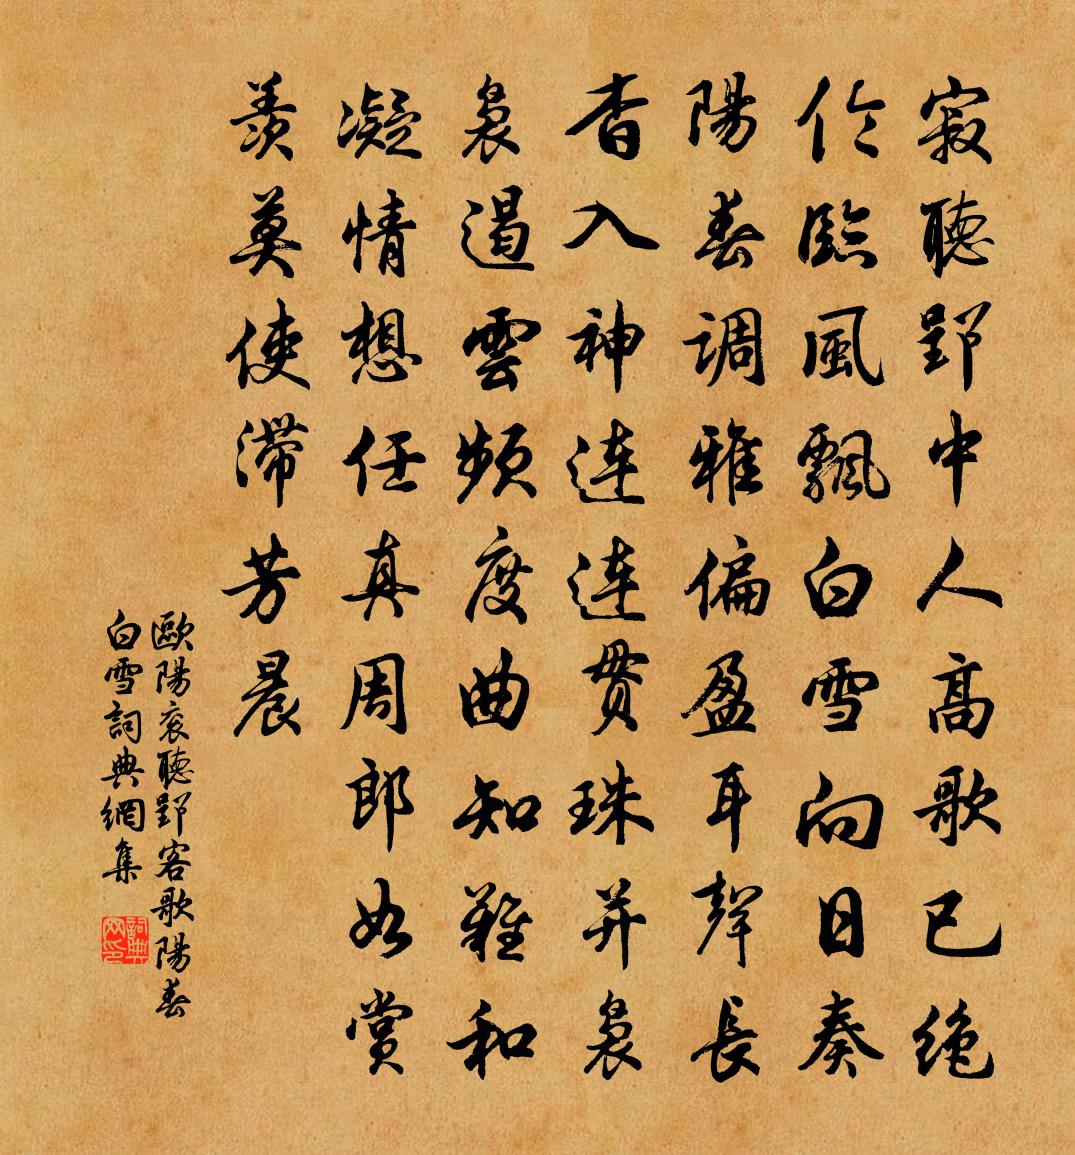 寂聽郢中人高歌已絕
倫臨風飄白雪向日奏
陽春調雅偏盈耳聲長
杳入神連連貫珠并裊
裊遏雲頻度曲知難和
凝情想任真周郎如賞
羨莫使滯芳晨
歐陽袞聽郢客歌陽春
白雪詞典網集
詞典
网印